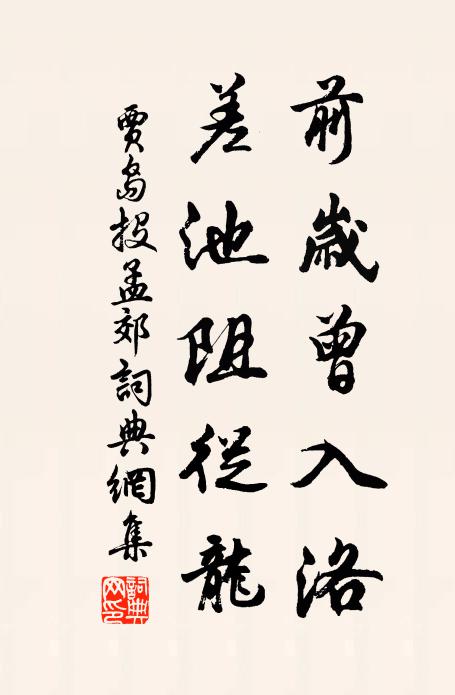 前歲曾入洛
差池阻從龍
賈島投孟郊詞典網集
詞典网印